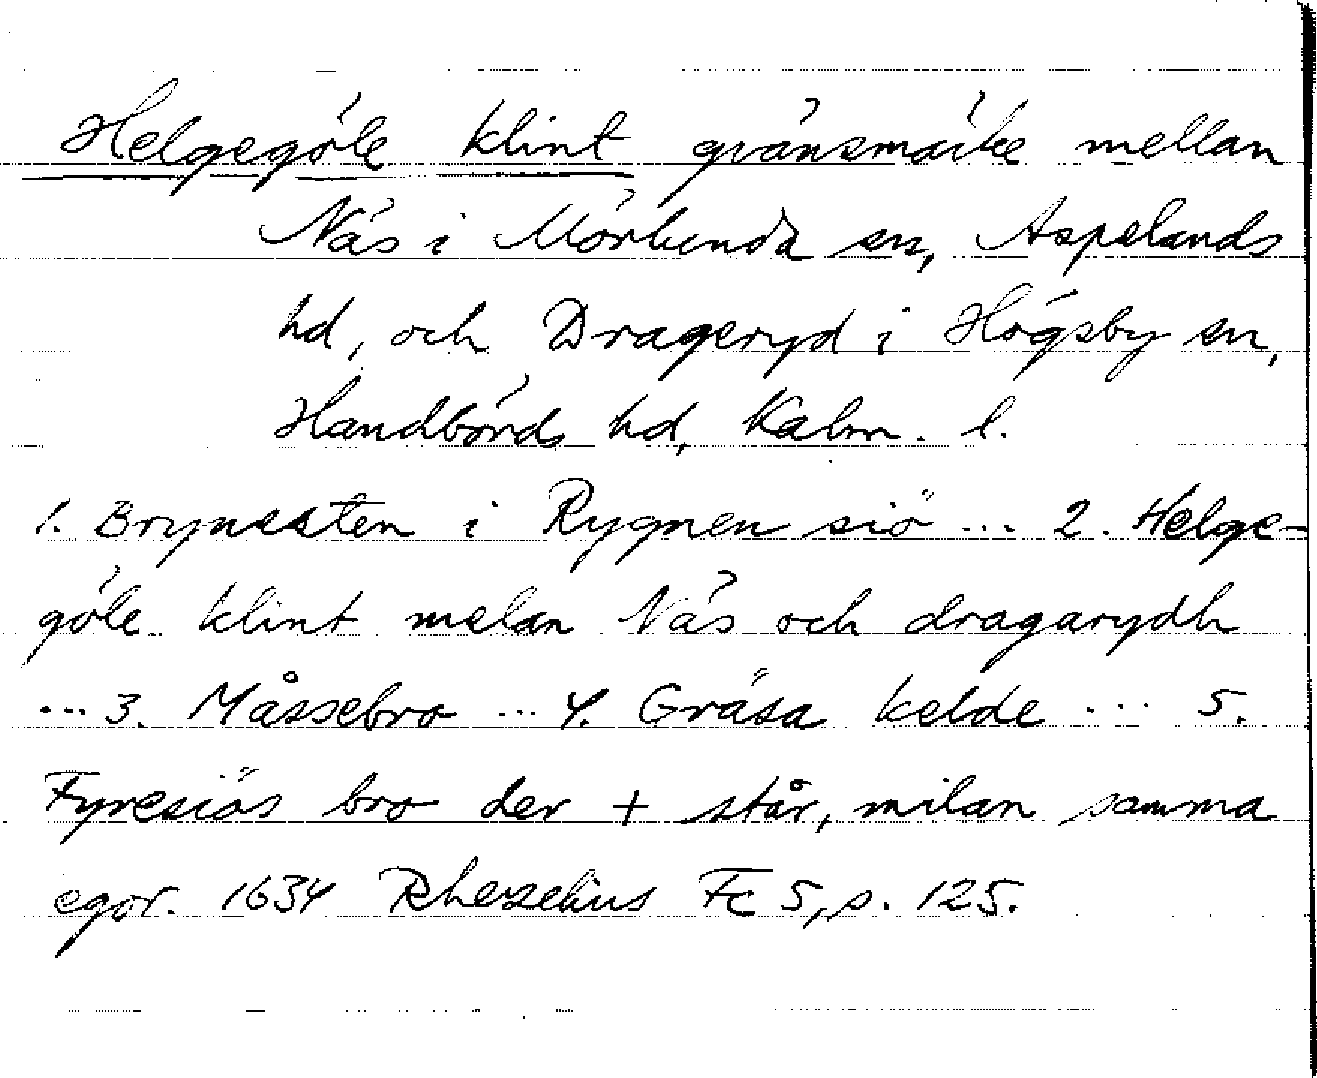 Helgegöle klint gränsmärke mellan
Näs i Mörlunda sn, Aspelands
hd, och Drageryd i Högsby sn,
Handbörds hd, Kalm. l.
1. Brynesten i Rygnen siö ... 2. Helge-
göle klint melan Näs och dragarydh
... 3. Måssebro ... 4. Gräsa kelde ... 5.
Fyresiös bro der + står, milan samma
egor. 1634 Rhezelius Fc 5, s. 125.